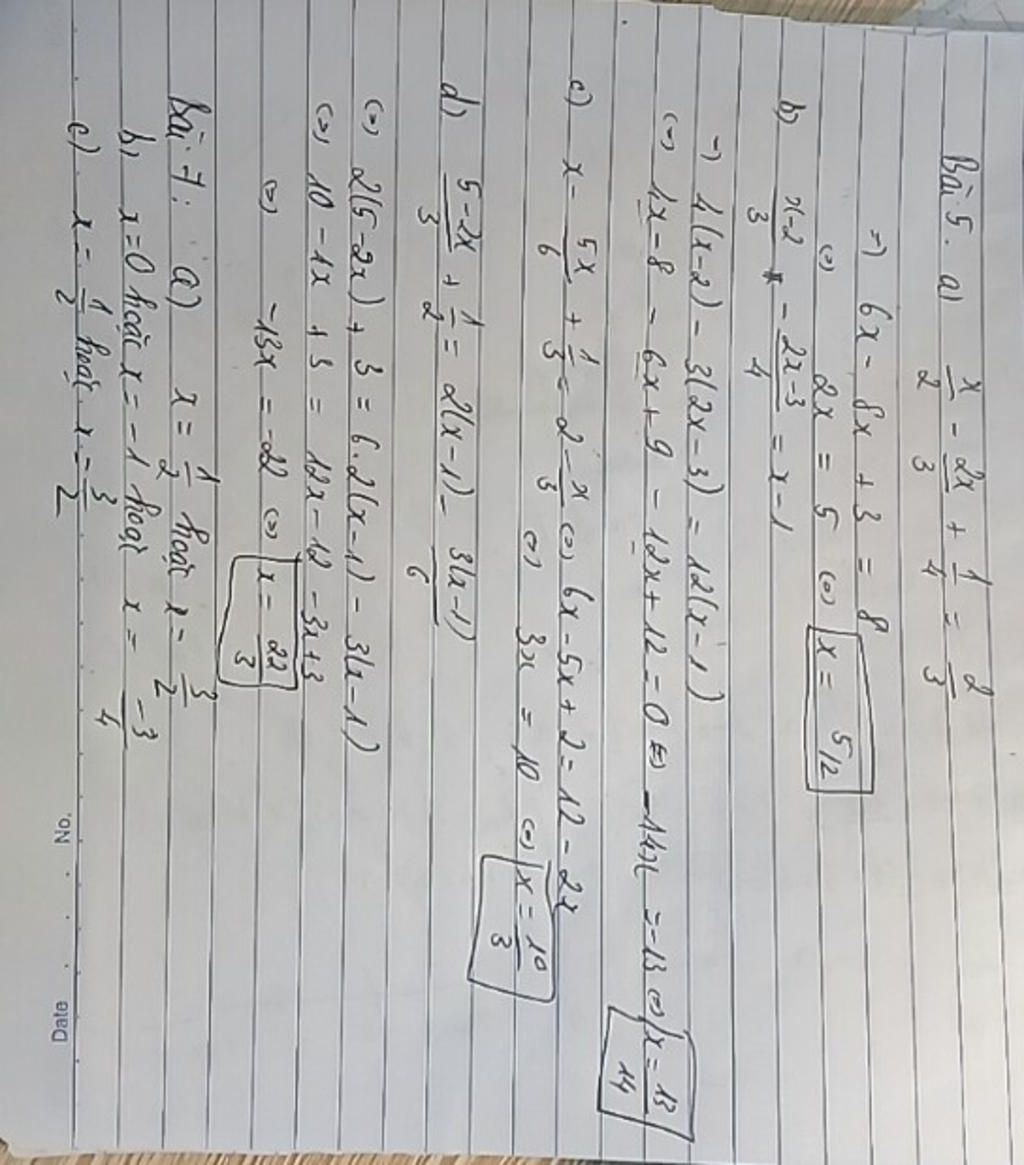 Bài 5. a) x/2 - 2x/3 + 1/4 = 2/3
=) 6x - 8x + 3 = 8
(=) 2x = 5 (=) x = 5/2
b) x-2/3 - 2x-3/4 = x - 1
=) 4(x-2) - 3(2x-3) = 12(x-1)
(=) 4x - 8 - 6x + 9 - 12x + 12 = 0 (=) -14x = -13 (=) x = 13/14
c) x - 5x/6 + 1/3 = 2 - x/3 (=) 6x - 5x + 2 = 12 - 2x
(=) 3x = 10 (=) x = 10/3
d) 5-2x/3 + 1/2 = 2(x-1) - 3(x-1)/6
(=) 2(5-2x) + 3 = 6.2(x-1) - 3(x-1)
(=) 10 - 4x + 3 = 12x - 12 - 3x + 3
(=) -13x = -22 (=) x = 22/3
Bài 7: a) x = 1/2 hoặc x = 3/2
b) x = 0 hoặc x = -1 hoặc x = -3/4
c) x = 1/2 hoặc x = 3/2
No. Date